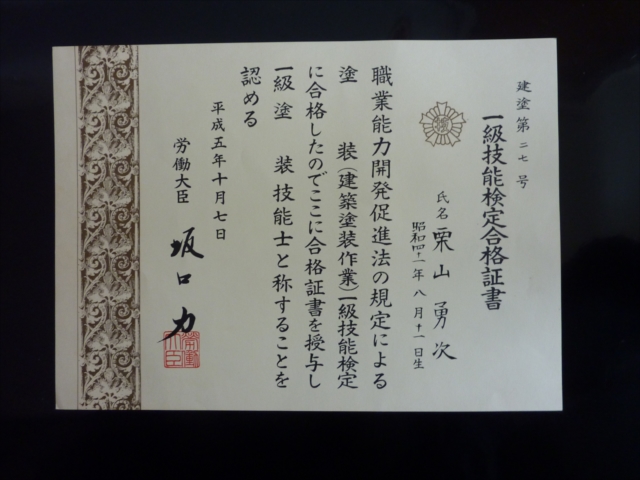 建塗第二七号
一級技能検定合格証書
氏名 栗山勇次
昭和四十一年八月十一日生
職業能力開発促進法の規定による
塗装(建築塗装作業)一級技能検定
に合格したのでここに合格証書を授与し
一級塗装技能士と称することを
認める
平成五年十月七日
労働大臣 坂口力
労働大臣